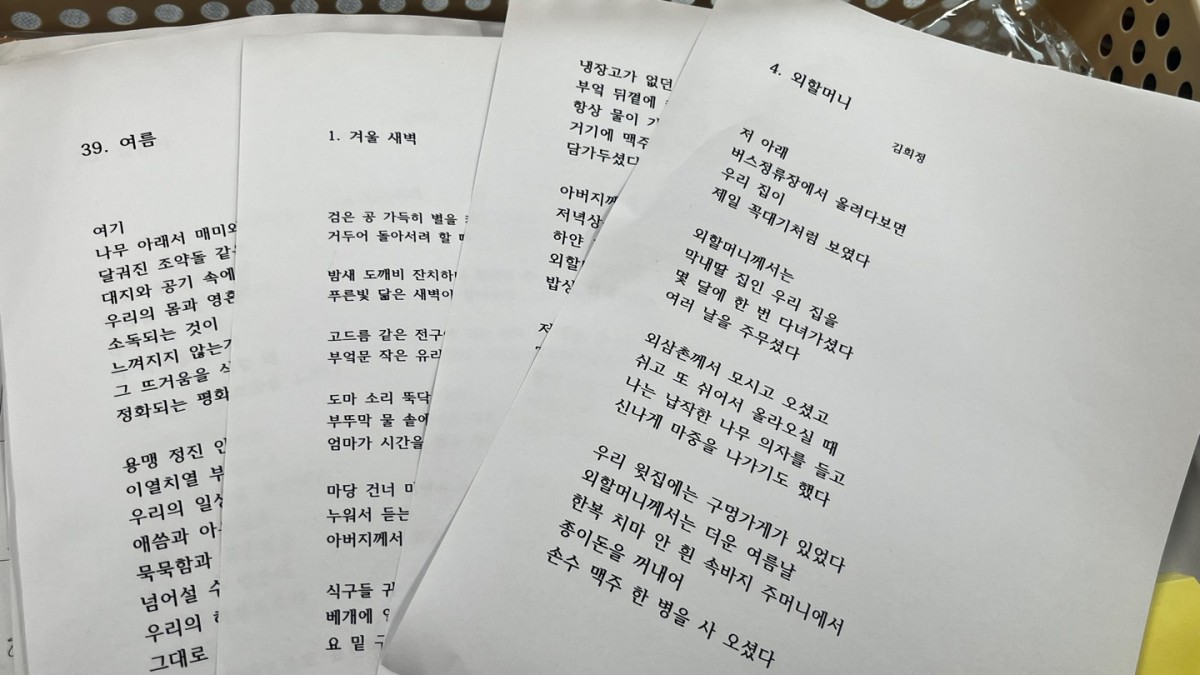 39. 여름
여기
나무 아래서 매미와
달궈진 조약돌 같은
대지와 공기 속에
우리의 몸과 영혼
소독되는 것이
느껴지지 않는가
그 뜨거움을
정화되는 평화
용맹 정진
이열치열
우리의
애씀과
묵묵함과
넘어설
우리의
그대로
1. 겨울 새벽
검은 공 가득히 별을
거두어 돌아서려 할
밤새 도깨비
푸른빛 닮은 새벽이
고드름 같은
부엌문 작은
도마 소리 뚝딱
부뚜막 물 솥에
엄마가 시간을
마당 건너
누워서 듣는
아버지께서
식구들
베개에
요 밑
냉장고가 없던
부엌 뒤곁에
항상 물이
거기에 맥주
담가두셨다
아버지께
저녁상
하얀
외할
밥상
저
4. 외할머니
김희정
저 아래
버스정류장에서 올려다보면
우리 집이
제일 꼭대기처럼 보였다
외할머니께서는
막내딸 집인 우리 집을
몇 달에 한 번 다녀가셨다
여러 날을 주무셨다
외삼촌께서 모시고 오셨고
쉬고 또 쉬어서 올라오실 때
나는 납작한 나무 의자를 들고
신나게 마중을 나가기도 했다
우리 윗집에는 구멍가게가 있었다
외할머니께서는 더운 여름날
한복 치마 안 흰 속바지 주머니에서
종이돈을 꺼내어
손수 맥주 한 병을 사 오셨다